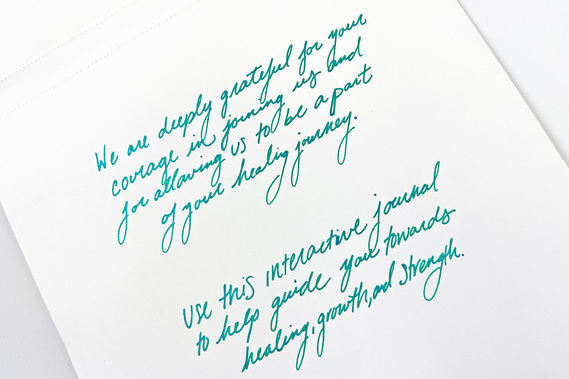 We are deeply grateful for your
courage in joining us and
for allowing us to be a part
of your healing journey.
Use this interactive journal
to help guide you towards
healing, growth, and strength.